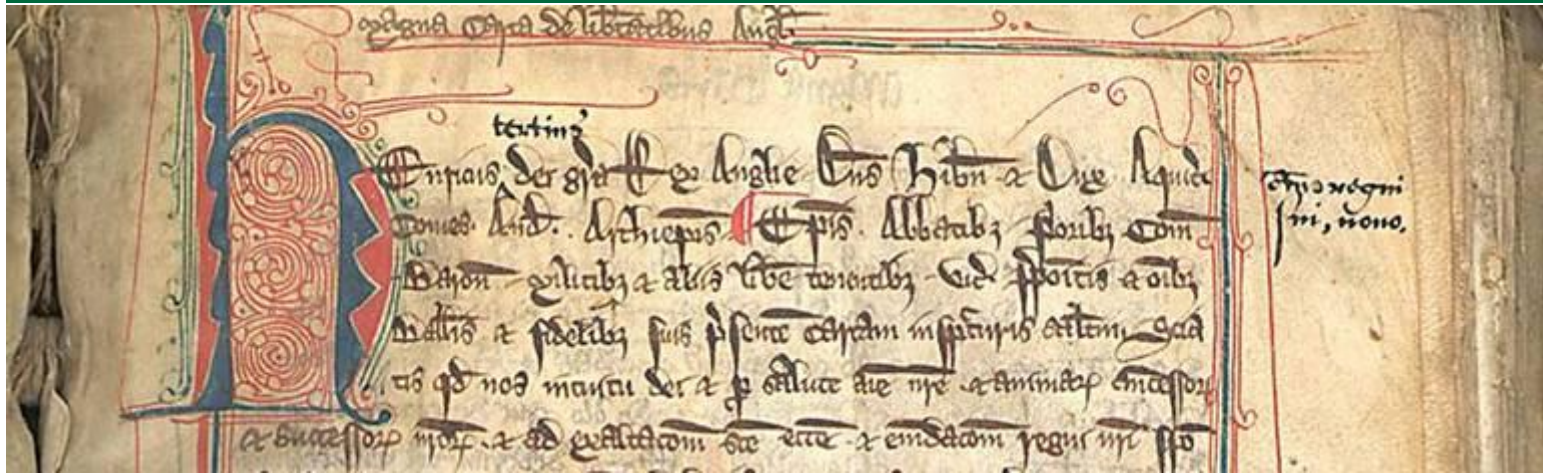 Magna Carta de lib̄tatibus Angl̄
tertius
Henricus dei gr̄a Rex Anglie Dn̄s Hib̄n ⁊ Dux Aquit̄
Comes And̄. Archiep̄is Ep̄is. Abbatibꝫ Prioribꝫ Com̄
Baron̄ Militibꝫ ⁊ aliis lib̄e tenentibꝫ Vic̄ p̄poitis ⁊ oībꝫ
Ball̄is ⁊ fidelibꝫ suis p̄sente Cartam insp̄cturis sal̄tm Scia
tis qd̄ nos intuitu dei ⁊ ꝑ salute aīe nr̄e ⁊ animaꝝ antecessoꝝ
⁊ successoꝝ nr̄oꝝ ⁊ ad exaltac̄om sc̄e ecc̄e ⁊ emdac̄om regni nr̄i
regni
sui, nono.